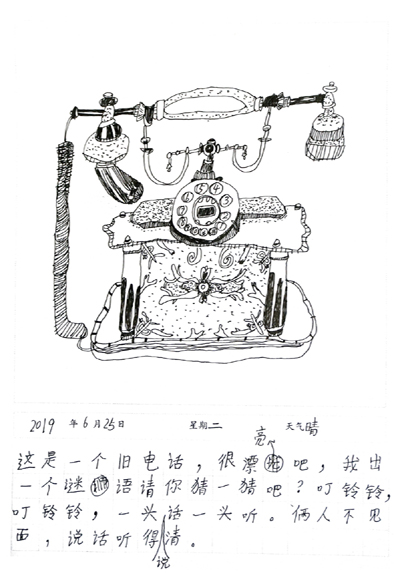 2019 年 6 月 25 日 星期二 天气晴
这是一个旧电话，很漂亮吧，我出
一个谜语请你猜一猜吧？叮铃铃，
叮铃铃，一头说话一头听。俩人不见
面，说话听得清。